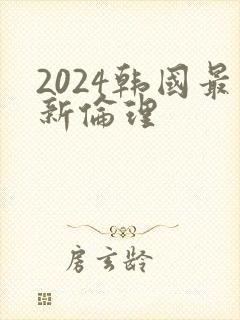 2024韩国最
新倫理
房玄龄